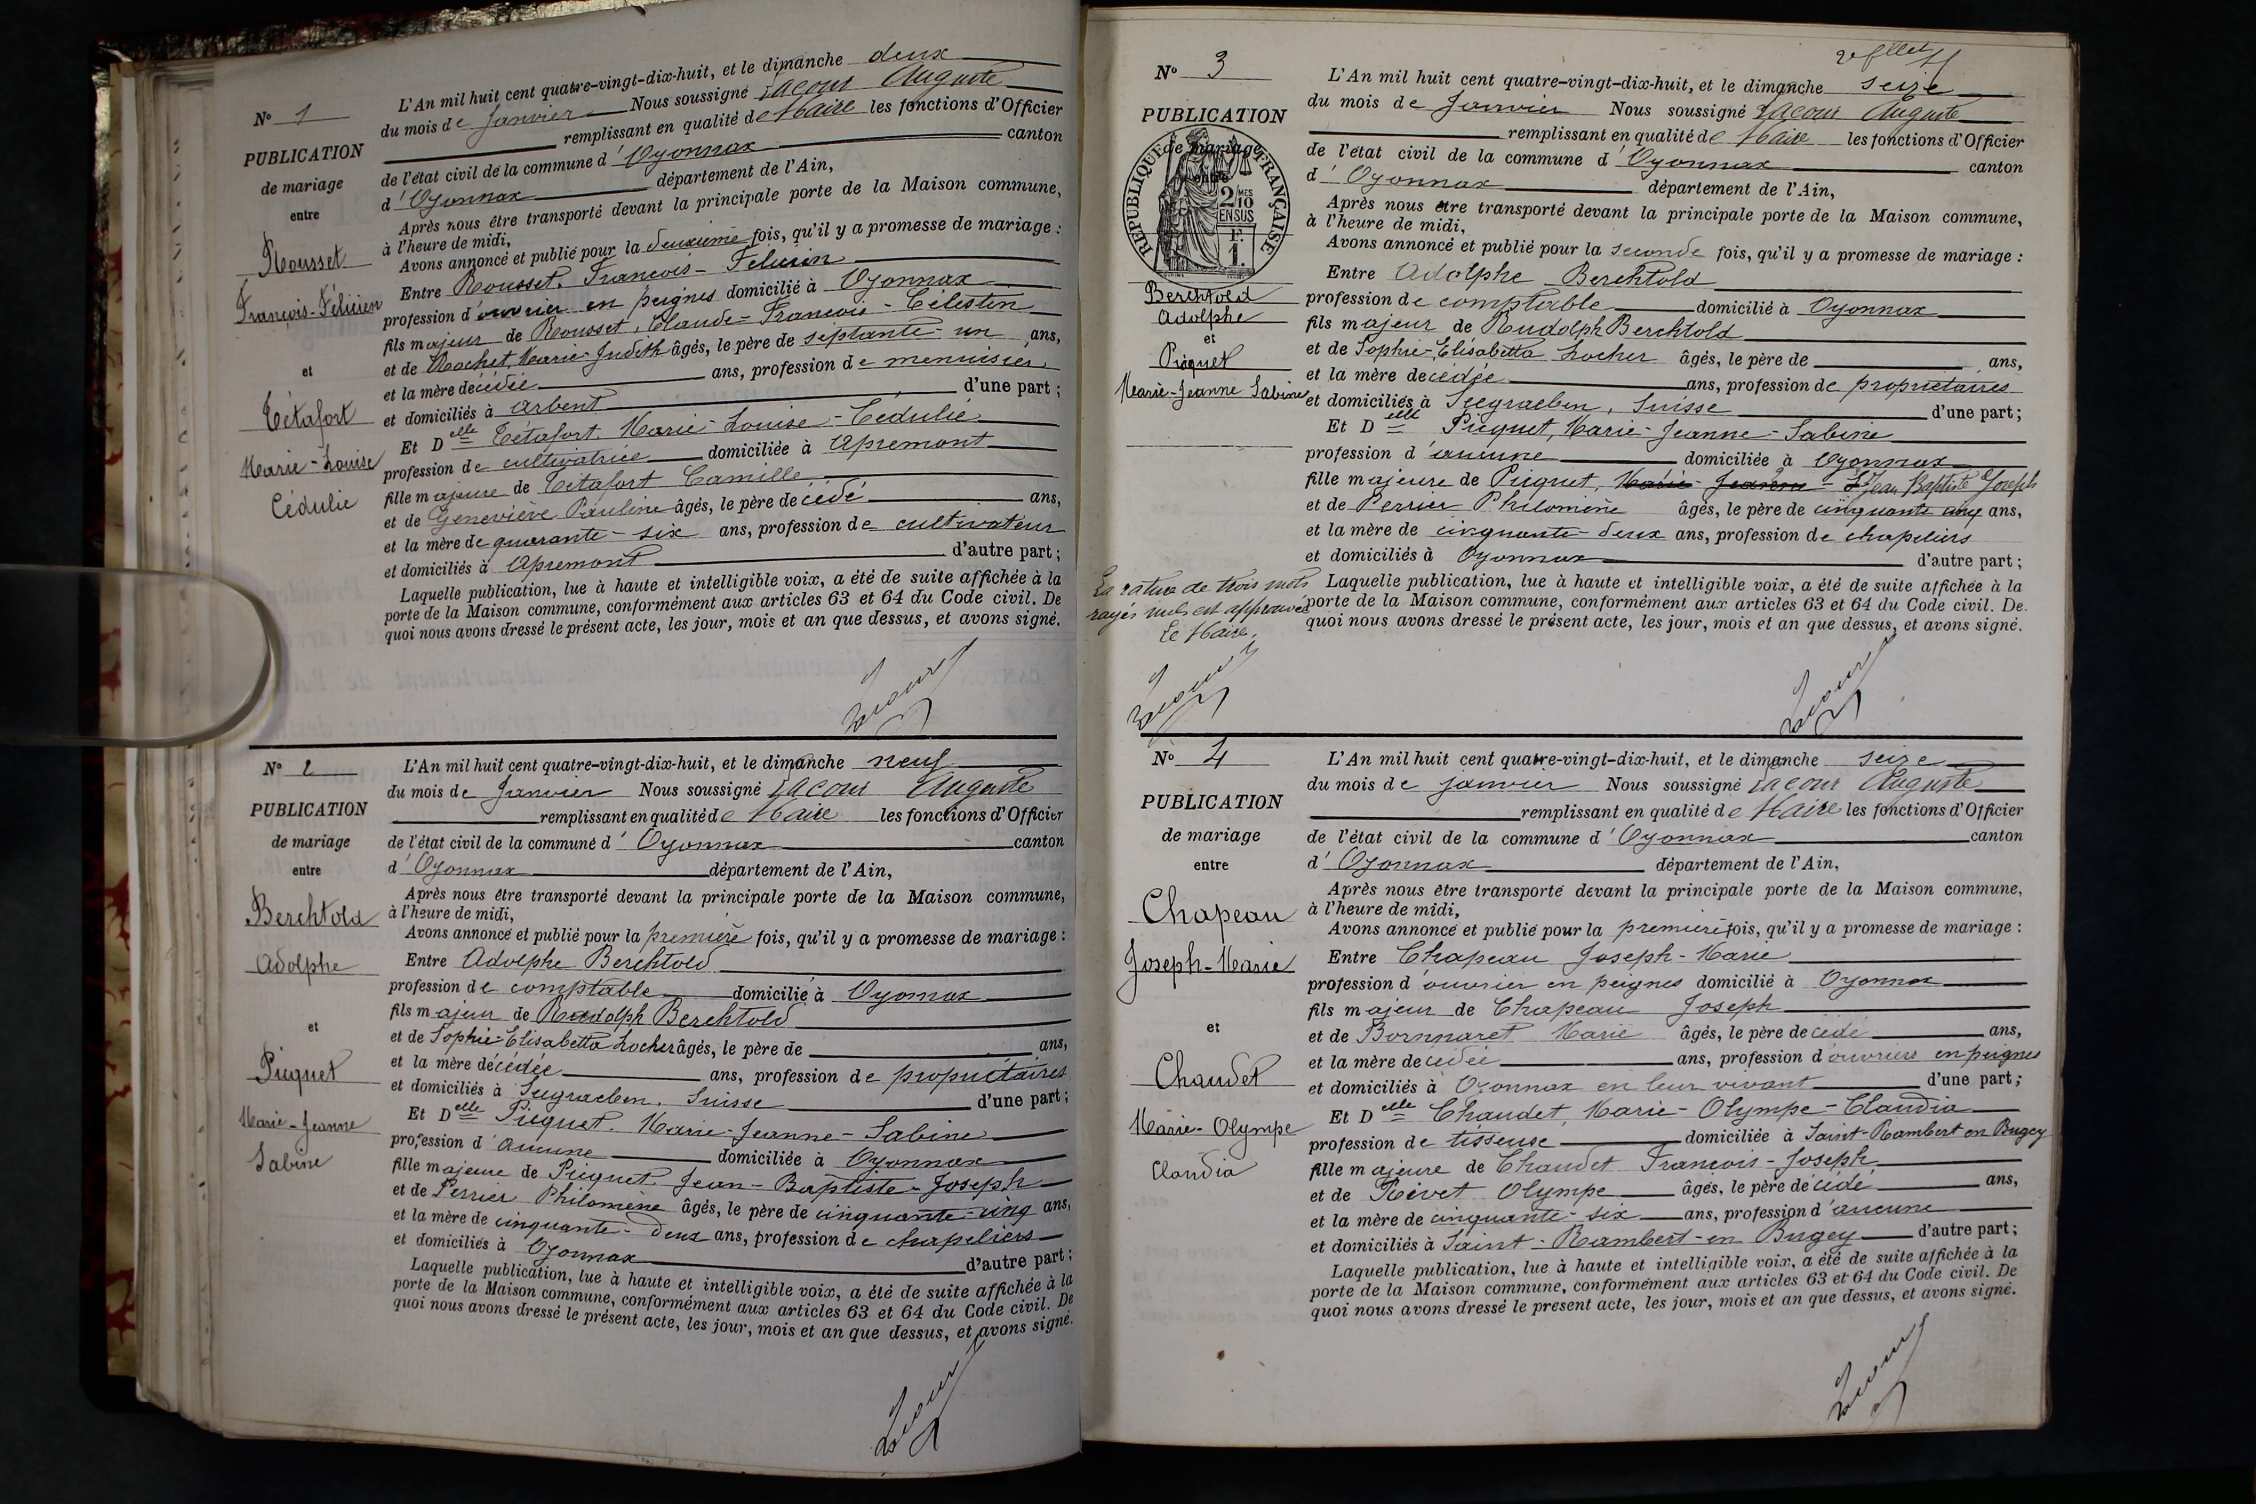 N° 1
PUBLICATION
de mariage
entre
Rousset
François-Félicien
et
Tétafort
Marie-Louise
Cédulie
L'An mil huit cent quatre-vingt-dix-huit, et le dimanche deux
du mois de Janvier Nous soussigné Lacour Auguste
remplissant en qualité de Maire les fonctions d'Officier
de l'état civil de la commune d'Oyonnax canton
d'Oyonnax département de l'Ain,
Après nous être transporté devant la principale porte de la Maison commune,
à l'heure de midi,
Avons annoncé et publié pour la deuxième fois, qu'il y a promesse de mariage :
Entre Rousset, François-Félicien
profession d'ouvrier en peignes domicilié à Oyonnax
fils majeur de Rousset, Claude-François-Célestin
et de Rochet, Marie-Judith âgés, le père de septante-un ans,
et la mère décédée ans, profession de menuisier
et domiciliés à Arbent d'une part ;
Et Delle Tétafort, Marie-Louise-Cédulie
profession de cultivatrice domiciliée à Apremont
fille majeure de Tétafort Camille
et de Geneviève Pauline âgés, le père décédé ans,
et la mère de quarante-six ans, profession de cultivateur
et domiciliés à Apremont d'autre part ;
Laquelle publication, lue à haute et intelligible voix, a été de suite affichée à la
porte de la Maison commune, conformément aux articles 63 et 64 du Code civil. De
quoi nous avons dressé le présent acte, les jour, mois et an que dessus, et avons signé.
Lacour
N° 2
PUBLICATION
de mariage
entre
Berchtold
Adolphe
et
Picquet
Marie-Jeanne
Sabine
L'An mil huit cent quatre-vingt-dix-huit, et le dimanche neuf
du mois de Janvier Nous soussigné Lacour Auguste
remplissant en qualité de Maire les fonctions d'Officier
de l'état civil de la commune d'Oyonnax canton
d'Oyonnax département de l'Ain,
Après nous être transporté devant la principale porte de la Maison commune,
à l'heure de midi,
Avons annoncé et publié pour la première fois, qu'il y a promesse de mariage :
Entre Adolphe Berchtold
profession de comptable domicilié à Oyonnax
fils majeur de Rudolph Berchtold
et de Sophie-Elisabetta Locher âgés, le père de ans,
et la mère décédée ans, profession de propriétaires
et domiciliés à Seegraeben, Suisse d'une part ;
Et Delle Picquet, Marie-Jeanne-Sabine
profession d'aucune domiciliée à Oyonnax
fille majeure de Picquet Jean-Baptiste-Joseph
et de Perrier Philomène âgés, le père de cinquante-cinq ans,
et la mère de cinquante-deux ans, profession de chapeliers
et domiciliés à Oyonnax d'autre part ;
Laquelle publication, lue à haute et intelligible voix, a été de suite affichée à la
porte de la Maison commune, conformément aux articles 63 et 64 du Code civil. De
quoi nous avons dressé le présent acte, les jour, mois et an que dessus, et avons signé.
Lacour
2e fllet
N° 3
PUBLICATION
de mariage
entre
RÉPUBLIQUE FRANÇAISE
2/10 MES
EN SUS
F.
1.
Berchtold
Adolphe
et
Picquet
Marie-Jeanne Sabine
La rature de trois mots
rayés nuls est approuvée
Le Maire,
Lacour
L'An mil huit cent quatre-vingt-dix-huit, et le dimanche seize
du mois de Janvier Nous soussigné Lacour Auguste
remplissant en qualité de Maire les fonctions d'Officier
de l'état civil de la commune d'Oyonnax canton
d'Oyonnax département de l'Ain,
Après nous être transporté devant la principale porte de la Maison commune,
à l'heure de midi,
Avons annoncé et publié pour la seconde fois, qu'il y a promesse de mariage :
Entre Adolphe Berchtold
profession de comptable domicilié à Oyonnax
fils majeur de Rudolph Berchtold
et de Sophie-Elisabetta Locher âgés, le père de ans,
et la mère décédée ans, profession de propriétaires
et domiciliés à Seegraeben, Suisse d'une part ;
Et Delle Picquet, Marie-Jeanne-Sabine
profession d'aucune domiciliée à Oyonnax
fille majeure de Picquet, Marie-Jeanne- Jean Baptiste Joseph
et de Perrier Philomène âgés, le père de cinquante cinq ans,
et la mère de cinquante-deux ans, profession de chapeliers
et domiciliés à Oyonnax d'autre part ;
Laquelle publication, lue à haute et intelligible voix, a été de suite affichée à la
porte de la Maison commune, conformément aux articles 63 et 64 du Code civil. De
quoi nous avons dressé le présent acte, les jour, mois et an que dessus, et avons signé.
Lacour
N° 4
PUBLICATION
de mariage
entre
Chapeau
Joseph-Marie
et
Chaudet
Marie-Olympe
Claudia
L'An mil huit cent quatre-vingt-dix-huit, et le dimanche seize
du mois de janvier Nous soussigné Lacour Auguste
remplissant en qualité de Maire les fonctions d'Officier
de l'état civil de la commune d'Oyonnax canton
d'Oyonnax département de l'Ain,
Après nous être transporté devant la principale porte de la Maison commune,
à l'heure de midi,
Avons annoncé et publié pour la première fois, qu'il y a promesse de mariage :
Entre Chapeau Joseph-Marie
profession d'ouvrier en peignes domicilié à Oyonnax
fils majeur de Chapeau Joseph
et de Bornnaret Marie âgés, le père décédé ans,
et la mère décédée ans, profession d'ouvriers en peignes
et domiciliés à Oyonnax en leur vivant d'une part ;
Et Delle Chaudet, Marie-Olympe-Claudia
profession de tisseuse domiciliée à Saint-Rambert en Bugey
fille majeure de Chaudet François-Joseph
et de Rêvet Olympe âgés, le père décédé ans,
et la mère de cinquante-six ans, profession d'aucune
et domiciliés à Saint-Rambert-en Bugey d'autre part ;
Laquelle publication, lue à haute et intelligible voix, a été de suite affichée à la
porte de la Maison commune, conformément aux articles 63 et 64 du Code civil. De
quoi nous avons dressé le présent acte, les jour, mois et an que dessus, et avons signé.
Lacour